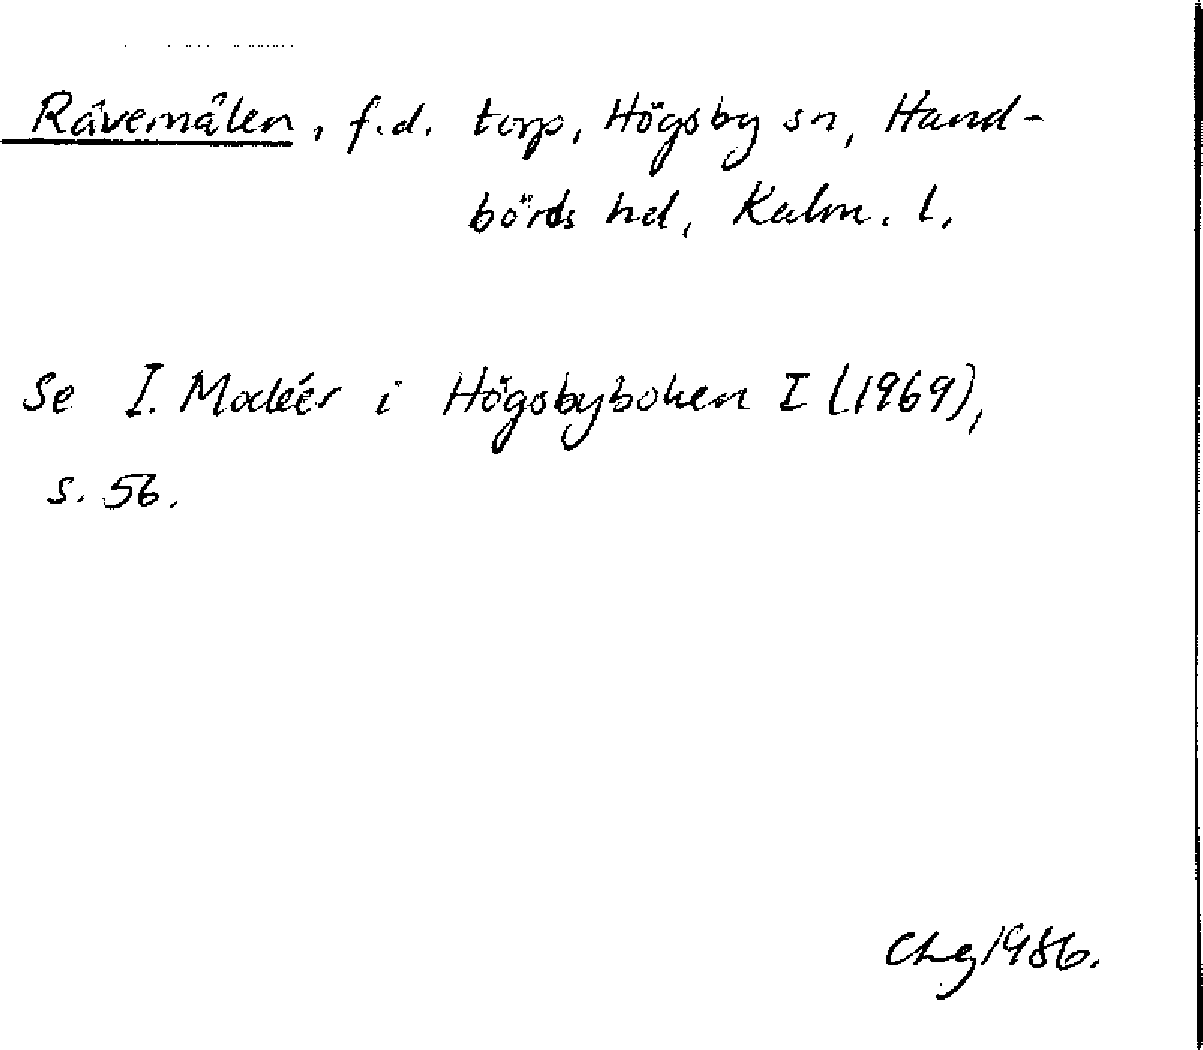 Råvemålen, f.d. torp, Högsby sn, Hand-
börds hd, Kalm. l.
Se I. Modéer i Högsbyboken I (1969),
s. 56.
Chg 1986.